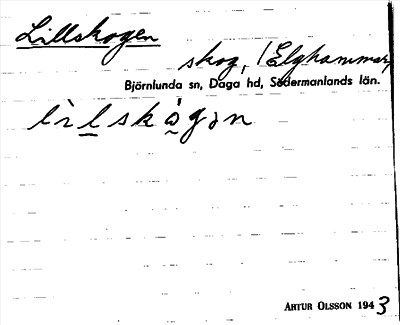 Lillskogen
skog, (Elghammar)
Björnlunda sn, Daga hd, Södermanlands län.
lìlskǻgən
ARTUR OLSSON 1943